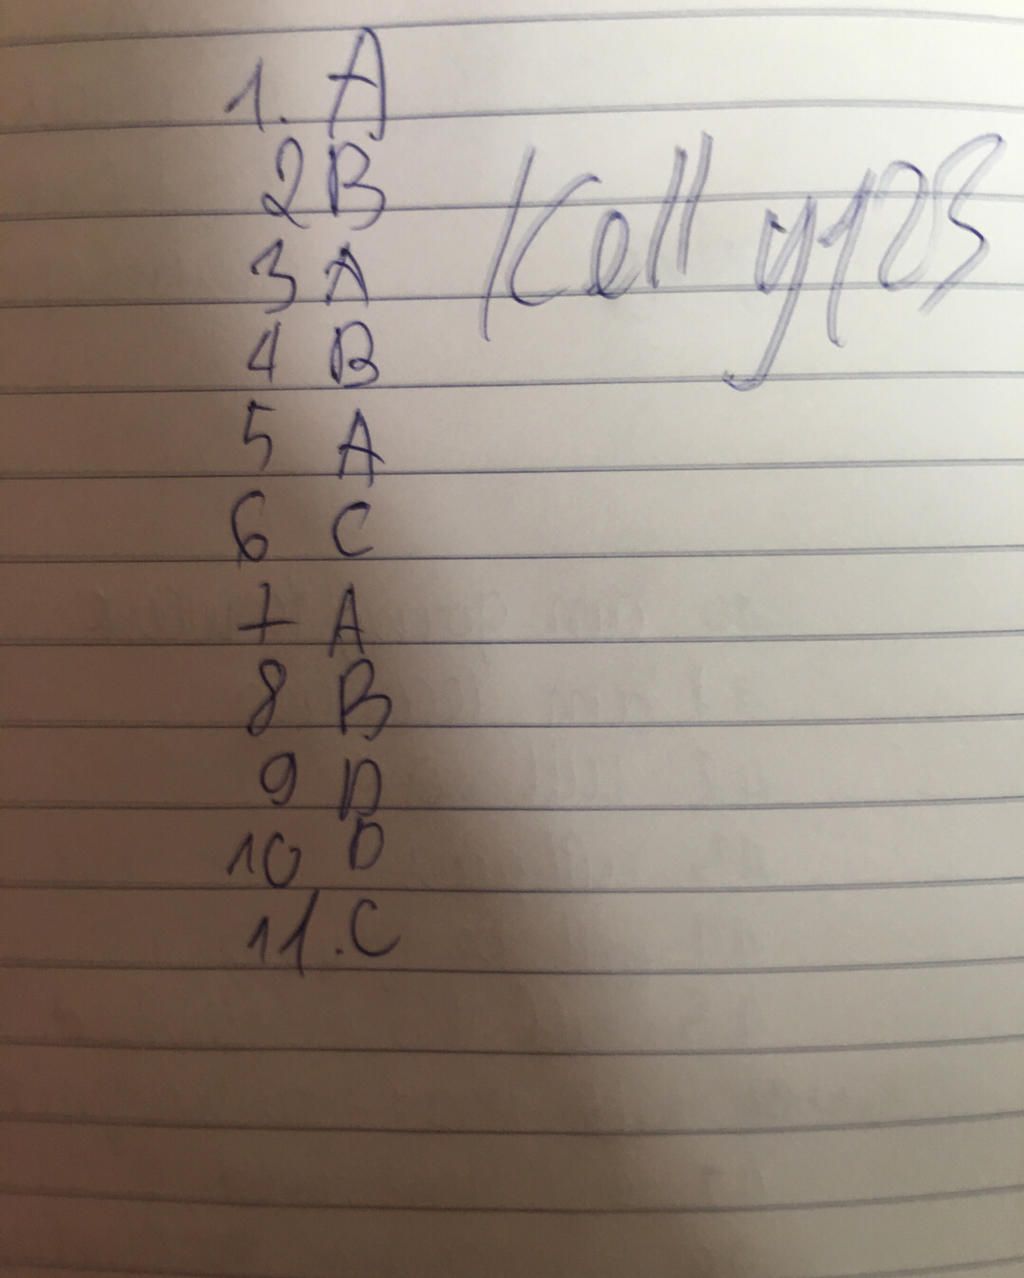 1. A
2 B
3 A
4 B
5 A
6 C
7 A
8 B
9 D
10 D
11. C
Kelly123